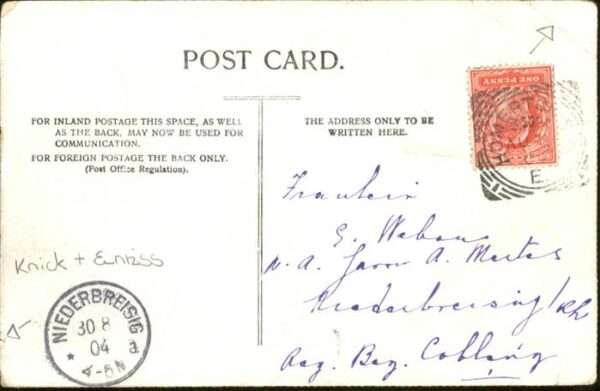 POST CARD.
FOR INLAND POSTAGE THIS SPACE, AS WELL
AS THE BACK, MAY NOW BE USED FOR
COMMUNICATION.
FOR FOREIGN POSTAGE THE BACK ONLY.
(Post Office Regulation).
THE ADDRESS ONLY TO BE
WRITTEN HERE.
ONE PENNY
E
Fraulein
Niederbreisig/Rh
Reg. Bez. Coblenz
Knick + Einriss
NIEDERBREISIG
30 8
04 a
* 4-5N